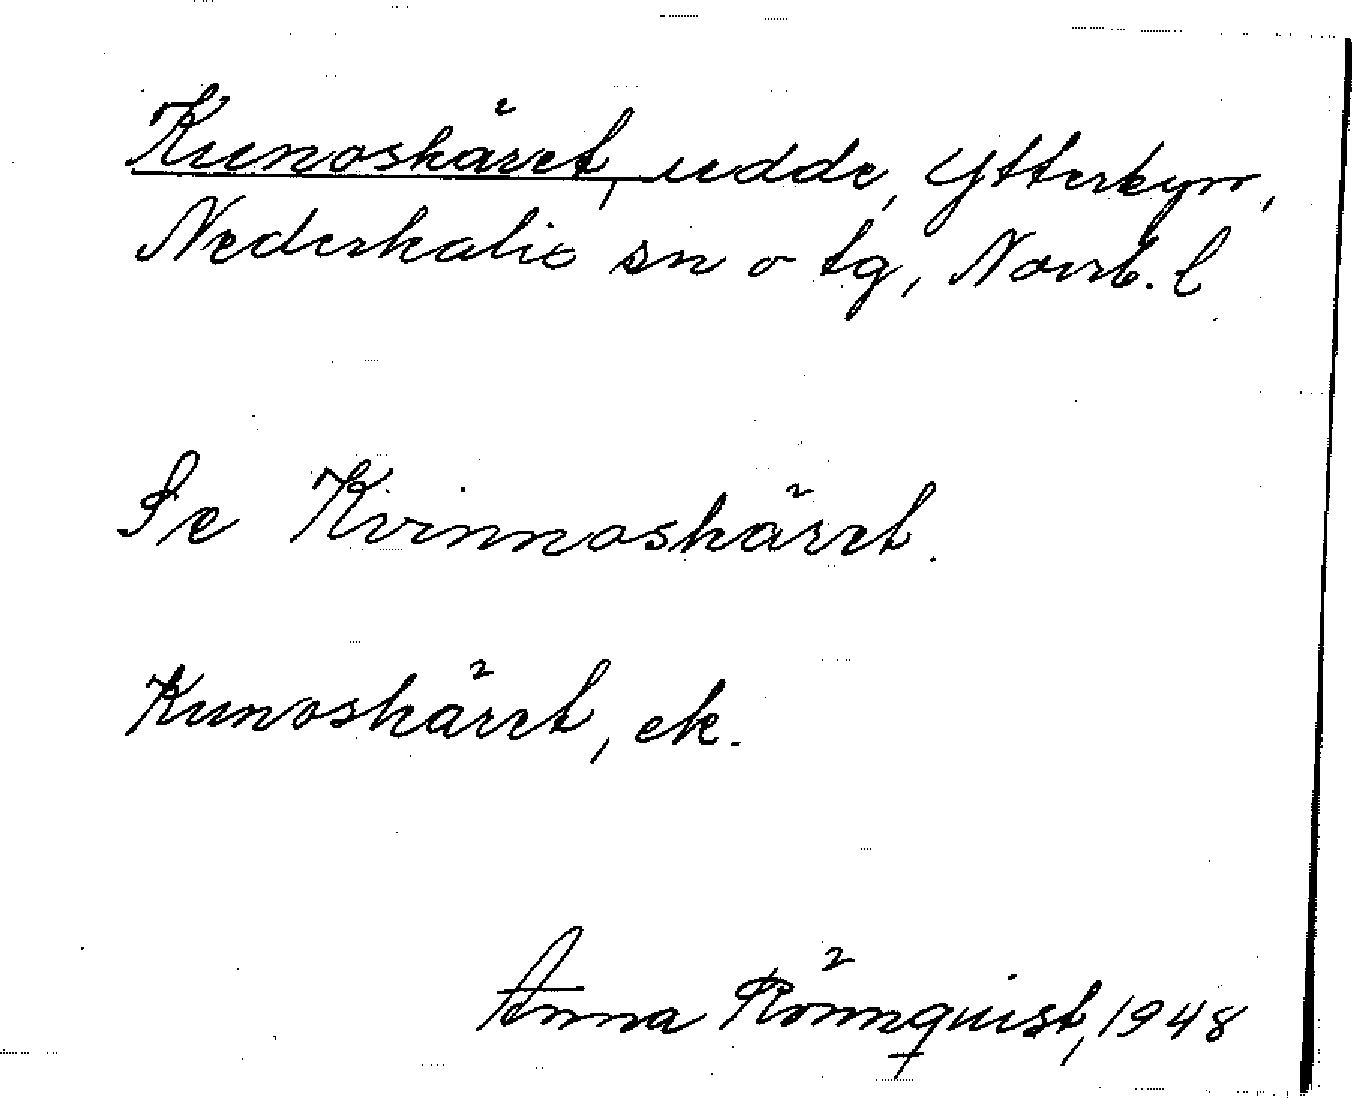 Kunoskäret, udde, Ytterbyn,
Nederkalix sn o tg, Norrb. l
Se Kvinnoskäret.
Kunoskäret, ek.
Anna Rönnquist, 1948